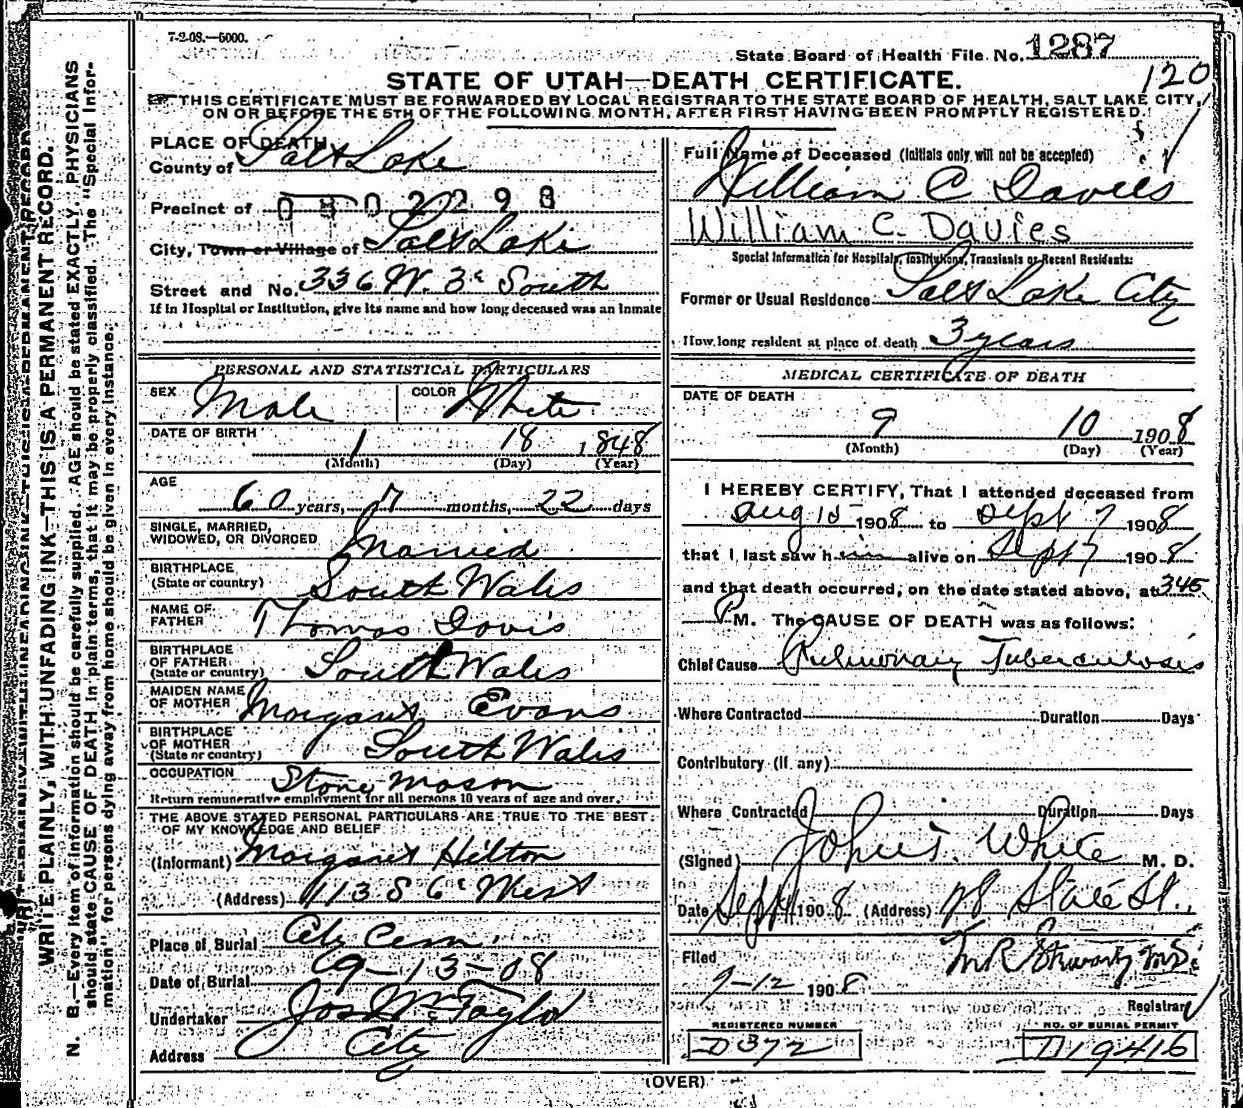 7-2-08.—5000.
State Board of Health File No. 1287
120
STATE OF UTAH—DEATH CERTIFICATE.
THIS CERTIFICATE MUST BE FORWARDED BY LOCAL REGISTRAR TO THE STATE BOARD OF HEALTH, SALT LAKE CITY,
ON OR BEFORE THE 5TH OF THE FOLLOWING MONTH, AFTER FIRST HAVING BEEN PROMPTLY REGISTERED.
WRITE PLAINLY, WITH UNFADING INK—THIS IS A PERMANENT RECORD.
N. B.—Every item of information should be carefully supplied. AGE should be stated EXACTLY. PHYSICIANS
should state CAUSE OF DEATH in plain terms, that it may be properly classified. The "Special Infor-
mation" for persons dying away from home should be given in every instance.
PLACE OF DEATH
County of Salt Lake
Precinct of
0 2298
City, Town or Village of Salt Lake
Street and No. 336 W. 3d South
If in Hospital or Institution, give its name and how long deceased was an inmate
PERSONAL AND STATISTICAL PARTICULARS
SEX Male COLOR White
DATE OF BIRTH 1 18 1848
(Month) (Day) (Year)
AGE
60 years, 7 months, 22 days
SINGLE, MARRIED,
WIDOWED, OR DIVORCED Married
BIRTHPLACE
(State or country) South Wales
NAME OF
FATHER Thomas Davis
BIRTHPLACE
OF FATHER
(State or country) South Wales
MAIDEN NAME
OF MOTHER Margaret Evans
BIRTHPLACE
OF MOTHER
(State or country) South Wales
OCCUPATION Stone Mason
Return remunerative employment for all persons 10 years of age and over.
THE ABOVE STATED PERSONAL PARTICULARS ARE TRUE TO THE BEST
OF MY KNOWLEDGE AND BELIEF
(Informant) Margaret Hilton
(Address) 1138 6 West
Place of Burial City Cem.
Date of Burial 9-13-08
Undertaker Jos Wm Taylor
Address City
Full Name of Deceased (Initials only will not be accepted)
William C Davies
William C. Davies
Special Information for Hospitals, Institutions, Transients or Recent Residents:
Former or Usual Residence Salt Lake City
How long resident at place of death 3 years
MEDICAL CERTIFICATE OF DEATH
DATE OF DEATH
9 10 1908
(Month) (Day) (Year)
I HEREBY CERTIFY, That I attended deceased from
Aug 15 1908 to Sept 7 1908
that I last saw him alive on Sept 7 1908
and that death occurred, on the date stated above, at 345
P M. The CAUSE OF DEATH was as follows:
Chief Cause Pulmonary Tuberculosis
Where Contracted Duration Days
Contributory (if any)
Where Contracted Duration Days
(Signed) John T. White M. D.
Date Sept 11 1908 (Address) 78 State St.
Filed
9-12 1908 M R Stewart M.D.
Registrar
REGISTERED NUMBER
D372
NO. OF BURIAL PERMIT
D19416
(OVER)